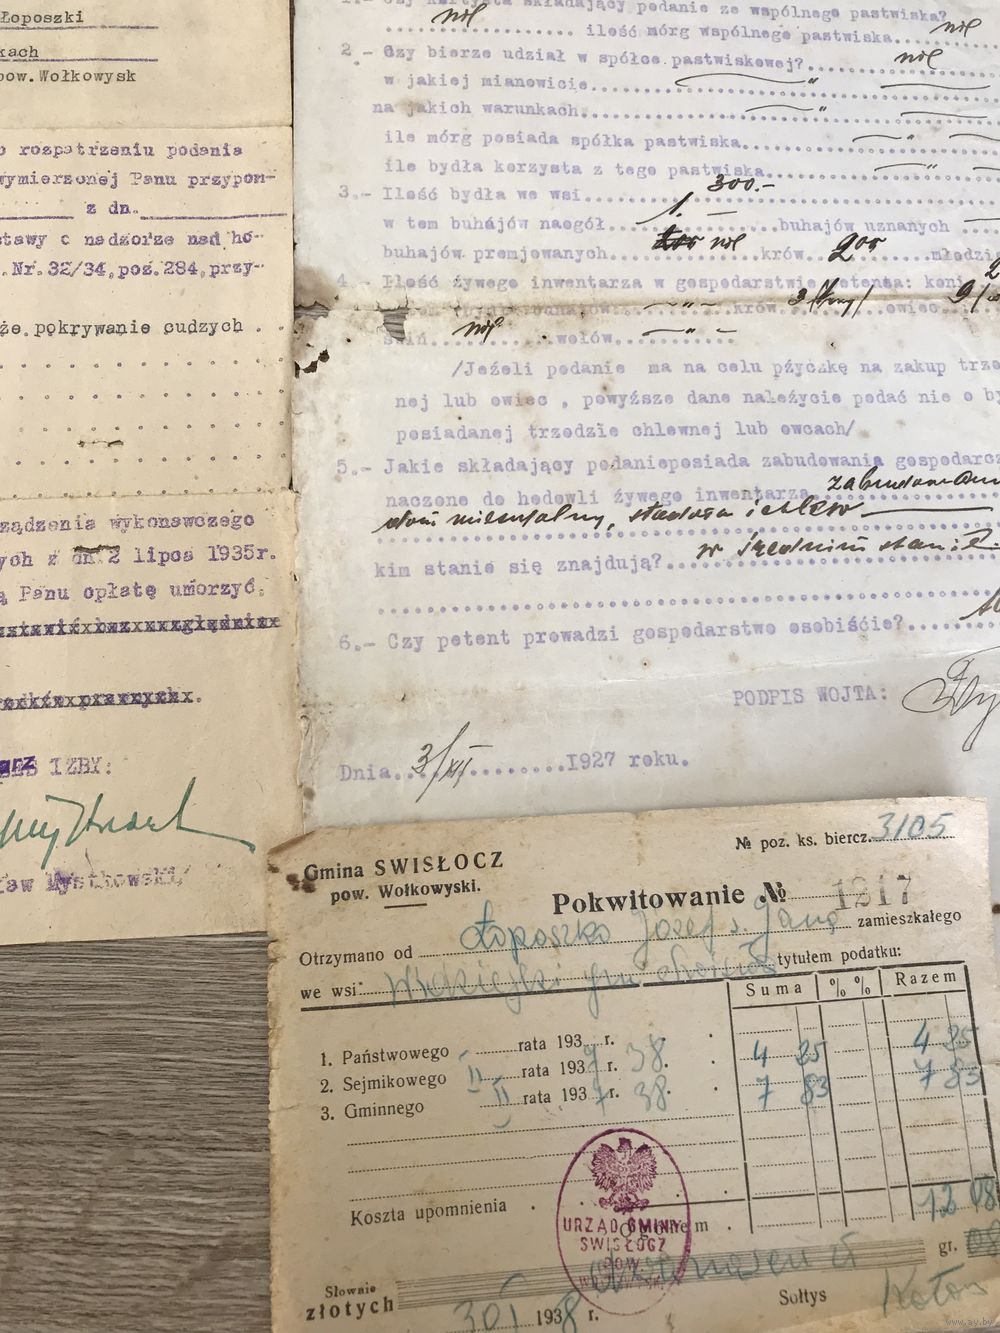 Łoposzki
kach
pow. Wołkowysk
o rozpatrzeniu podania
wymierzonej Panu przypom-
z dn.
tawy o nadzorze nad ho-
. Nr. 32/34, poz. 284, przy-
że pokrywanie cudzych
ządzenia wykonawczego
ych z dn. 2 lipca 1935r.
ą Panu opłatę umorzyć,
IZBY:
ław Mystkowski/
składający podanie ze wspólnego pastwiska?
nil ilość mórg wspólnego pastwiska nil
2.- Czy bierze udział w spółce pastwiskowej? nil
w jakiej mianowicie
na jakich warunkach
ile mórg posiada spółka pastwiska
ile bydła korzysta z tego pastwiska
3.- Ilość bydła we wsi 300.-
w tem buhajów naogół 1. buhajów uznanych
buhajów premjowanych nil krów 200 młodzi
4.- Ilość żywego inwentarza w gospodarstwie petenta: koni 2
krów 3 owiec 9
świń nil wołów
/Jeżeli podanie ma na celu pżyczkę na zakup trzo
nej lub owiec , powyższe dane należycie podać nie o by
posiadanej trzodzie chlewnej lub owcach/
5.- Jakie składający podanieposiada zabudowania gospodarcz
naczone do hodowli żywego inwentarza
dom mieszkalny, stodoła i chlew
kim stanie się znajdują? w średnim stanie.
6.- Czy petent prowadzi gospodarstwo osobiście?
PODPIS WOJTA:
Dnia 3/XII 1927 roku.
Gmina SWISŁOCZ
pow. Wołkowyski.
№ poz. ks. biercz. 3105
Pokwitowanie № 1217
Otrzymano od Łoposzko Józef s. Jana zamieszkałego
we wsi: tytułem podatku:
Suma % % Razem
1. Państwowego rata 193 r.
2. Sejmikowego II rata 1937 r. 38. 4 25 4 25
3. Gminnego II rata 1937 r. 38. 7 83 7 83
Koszta upomnienia
Ogółem 12 08
URZĄD GMINY
SWISŁOCZ
POW.
Słownie
złotych gr. 08
30 I 1938 r. Sołtys
www.ay.by